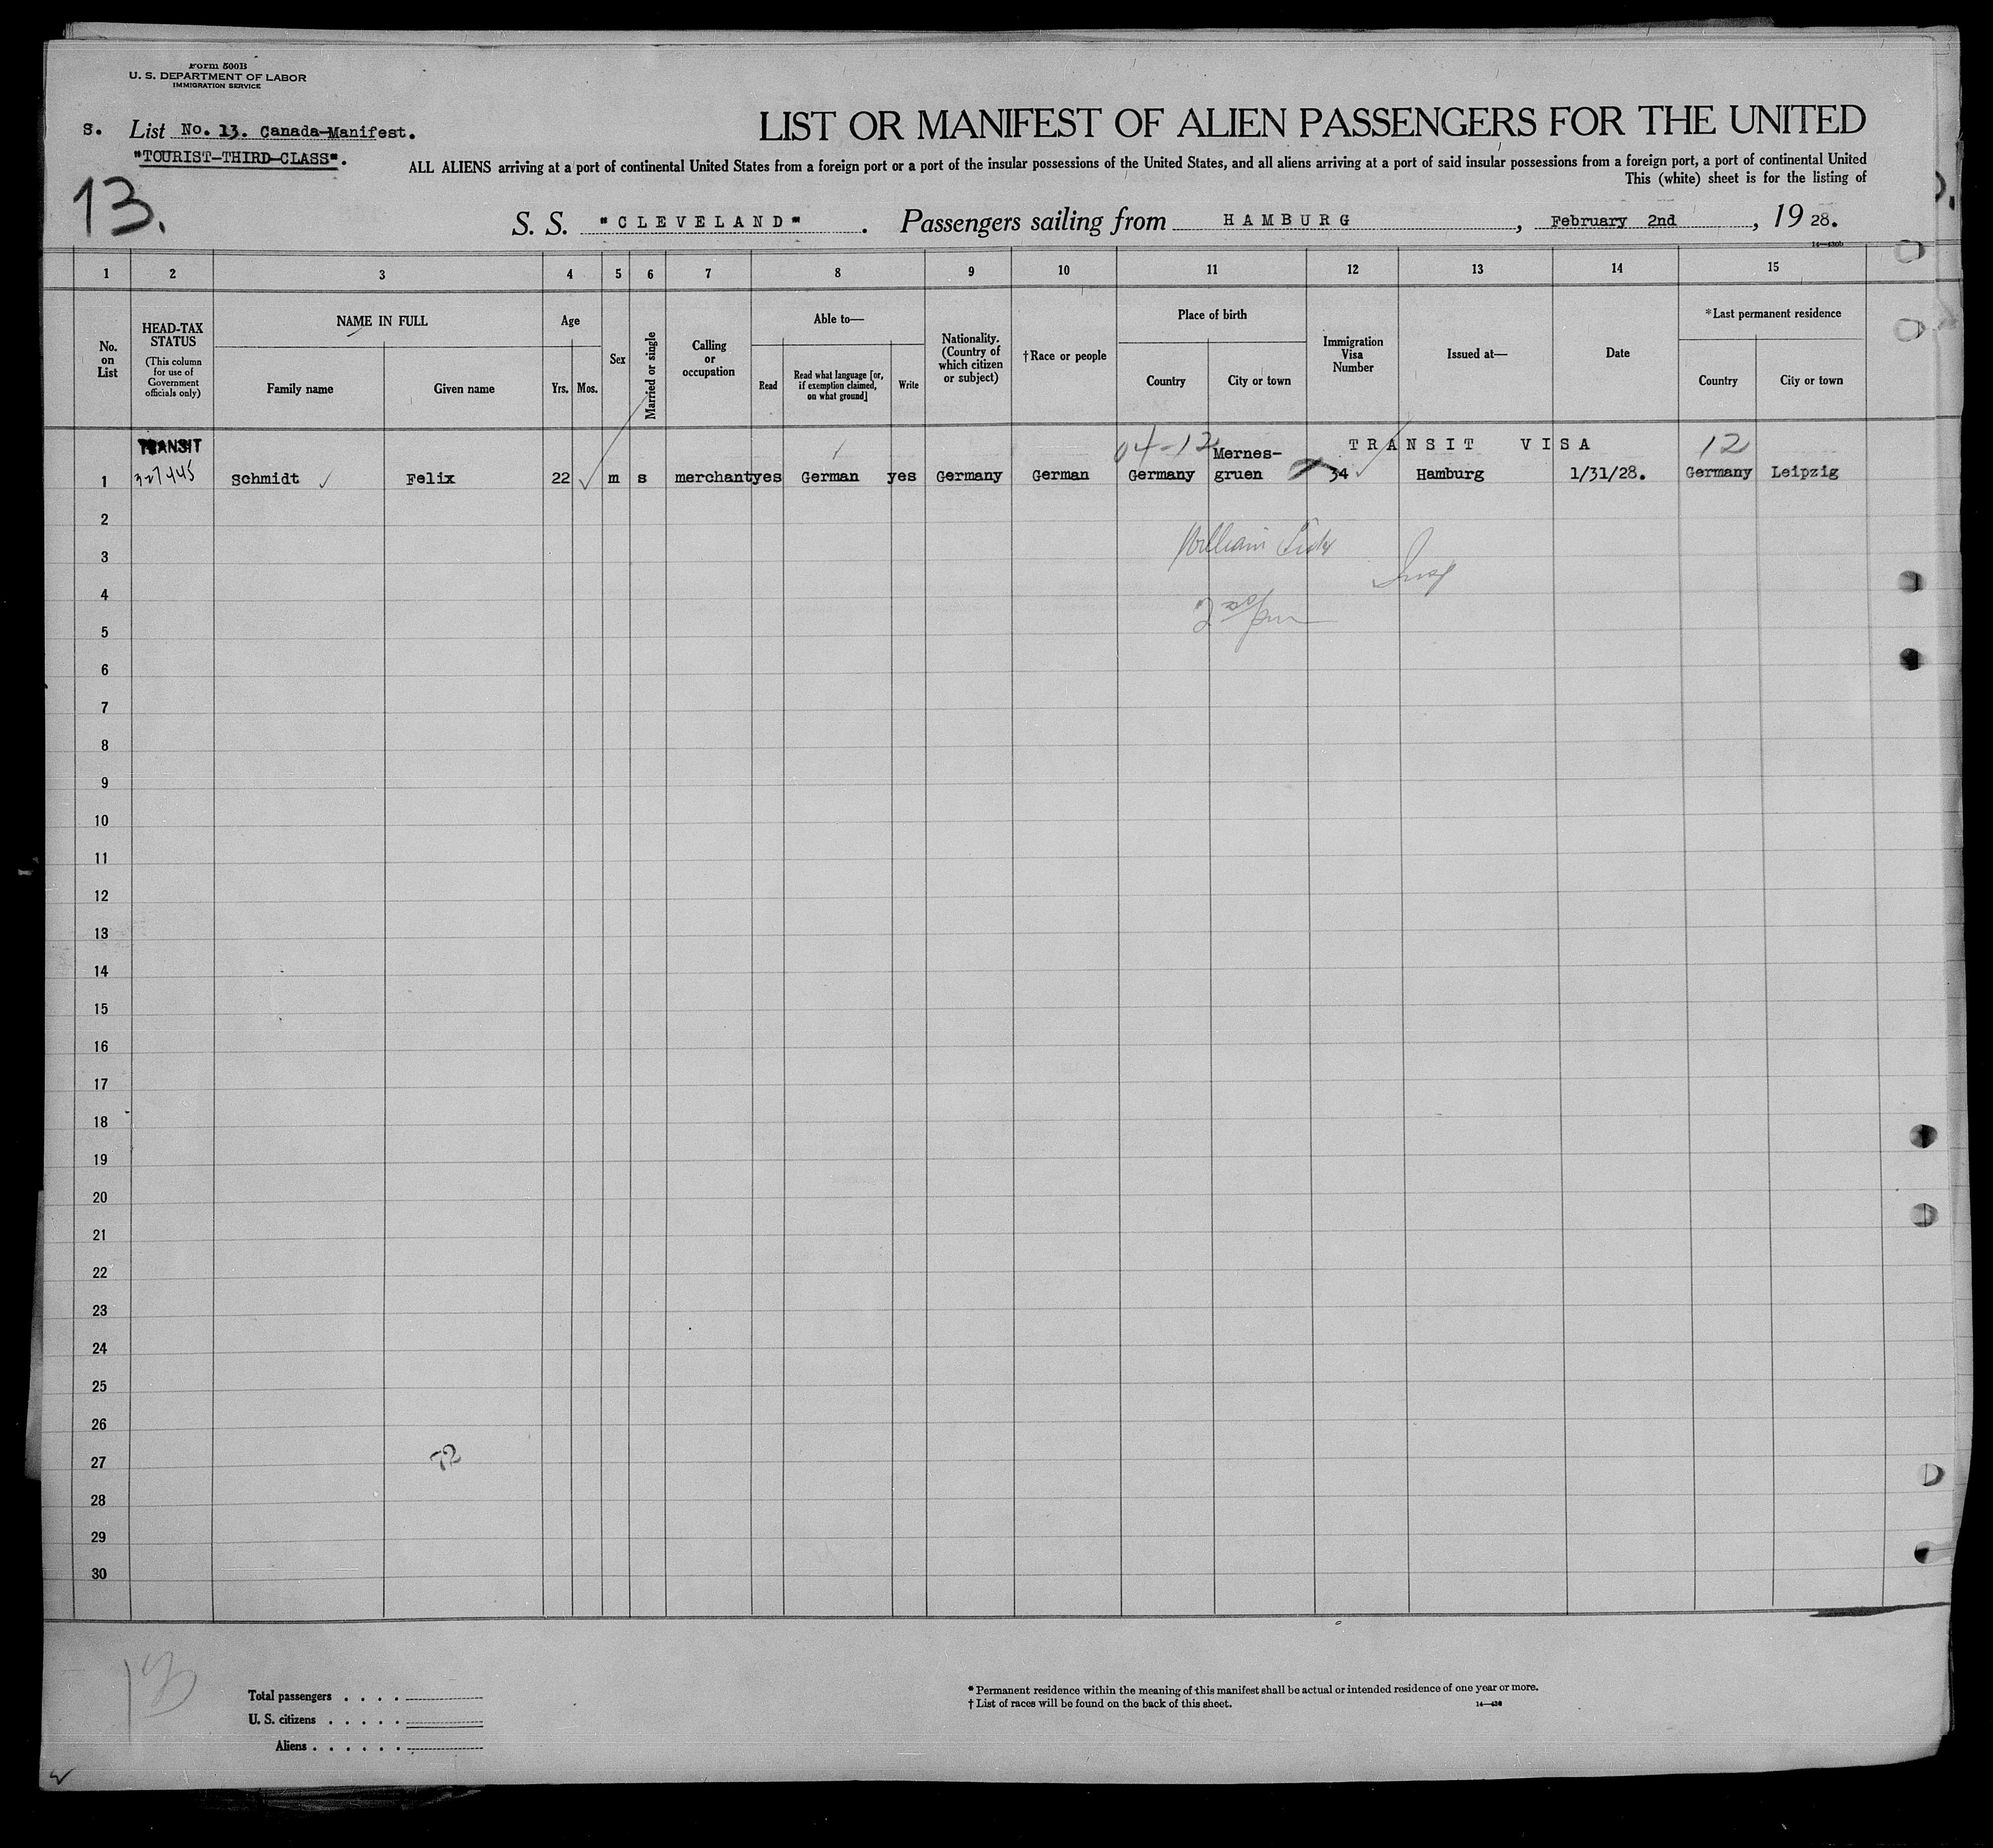 Form 500B
U. S. DEPARTMENT OF LABOR
IMMIGRATION SERVICE
S. List No. 13. Canada-Manifest.
"TOURIST-THIRD-CLASS".
13.
LIST OR MANIFEST OF ALIEN PASSENGERS FOR THE UNITED
ALL ALIENS arriving at a port of continental United States from a foreign port or a port of the insular possessions of the United States, and all aliens arriving at a port of said insular possessions from a foreign port, a port of continental United
This (white) sheet is for the listing of
S. S. "CLEVELAND". Passengers sailing from HAMBURG, February 2nd, 1928.
14—430b
1 2 3 4 5 6 7 8 9 10 11 12 13 14 15
No. on List
HEAD-TAX STATUS
(This column for use of Government officials only)
NAME IN FULL
Family name Given name
Age
Yrs. Mos.
Sex
Married or single
Calling or occupation
Able to—
Read
Read what language [or, if exemption claimed, on what ground]
Write
Nationality. (Country of which citizen or subject)
†Race or people
Place of birth
Country City or town
Immigration Visa Number
Issued at—
Date
*Last permanent residence
Country City or town
TRANSIT 04-12 Mernes- TRANSIT VISA 12
1 327445 Schmidt Felix 22 m s merchant yes German yes Germany German Germany gruen 34 Hamburg 1/31/28. Germany Leipzig
2
William
3
Insp
4
5
6
7
8
9
10
11
12
13
14
15
16
17
18
19
20
21
22
23
24
25
26
27
72
28
29
30
Total passengers . . . .
U. S. citizens . . . . .
Aliens . . . . . .
* Permanent residence within the meaning of this manifest shall be actual or intended residence of one year or more.
† List of races will be found on the back of this sheet.
14—430